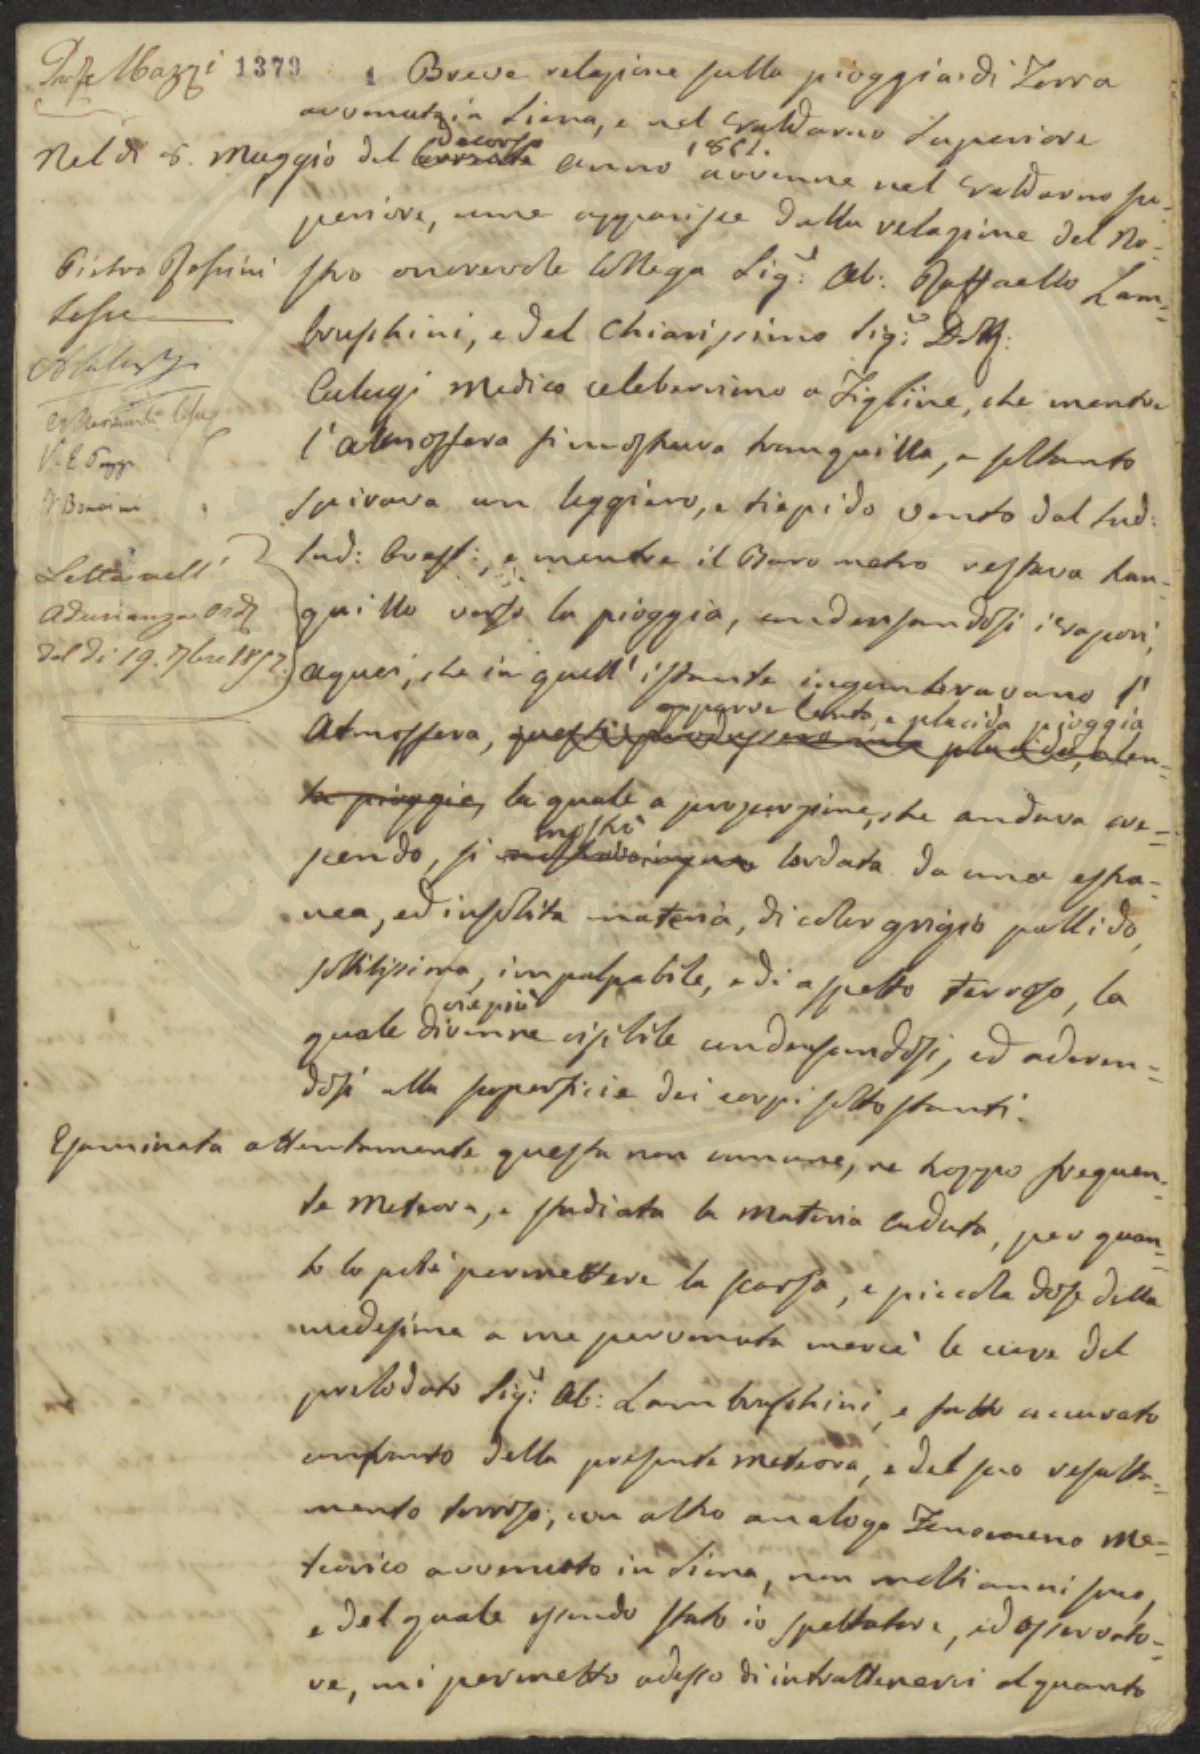 Prof.e Mazzi 1379
1 Breve relazione sulla pioggia di Terra
avvenuta in Siena, e nel Valdarno Superiore
decorso 1851.
Nel dì 5. Maggio del corrente anno avvenne nel Valdarno su-
periore, come apparisce dalla relazione del No-
Pietro
stro onorevole Collega Sig.r Ab: Raffaello Lam-
Lesse
bruschini, e del chiarissimo Sig.r
Calugi Medico celeberrimo a Figline, che mentre
l'atmosfera si mostrava tranquilla, e soltanto
spirava un leggiero, e tiepido vento dal Sud:
Sud: Ovest:, e mentre il Barometro restava tran-
Letta nell'
Adunanza Ord.
del dì 19. 7bre 1852.
quillo verso la pioggia, condensandosi i vapori
aquei, che in quell'istante ingombravano l'
apparve lenta, e placida pioggia
Atmosfera, questi produssero una placida, e len-
ta pioggia, la quale a proporzione, che andava cre-
mostrò
scendo, si lordata da una estra-
nea, ed insolita materia, di color grigio pallido,
sottilissima, impalpabile, e di aspetto terroso, la
vie più
quale divenne visibile condensandosi, ed aderen-
dosi alla superficie dei corpi sottostanti.
Esaminata attentamente questa non comune, ne troppo frequen-
te Meteora, e studiata la Materia caduta, per quan-
to lo potè permettere la scarsa, e piccola dose della
medesima a me pervenuta mercè le cure del
prelodato Sig.r Ab: Lambruschini, e fatto accurato
confronto della presente Meteora, e del suo resulta-
mento terroso, con altro analogo Fenomeno Me-
teorico avvenuto in Siena, non molti anni sono,
e del quale essendo stato io spettatore, ed osservato-
re, mi permetto adesso di intrattenervi alquanto